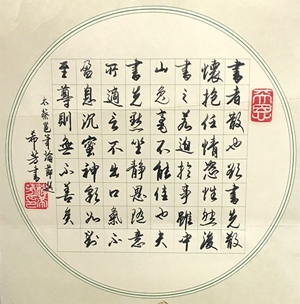 書者散也欲書先散
懷抱任情恣性然後
書之若迫於事雖中
山兔毫不能佳也夫
書先默坐靜思隨意
所適言不出口氣不
盈息沉密神彩如對
至尊則無不善矣
蔡邕筆論節選
希芳書